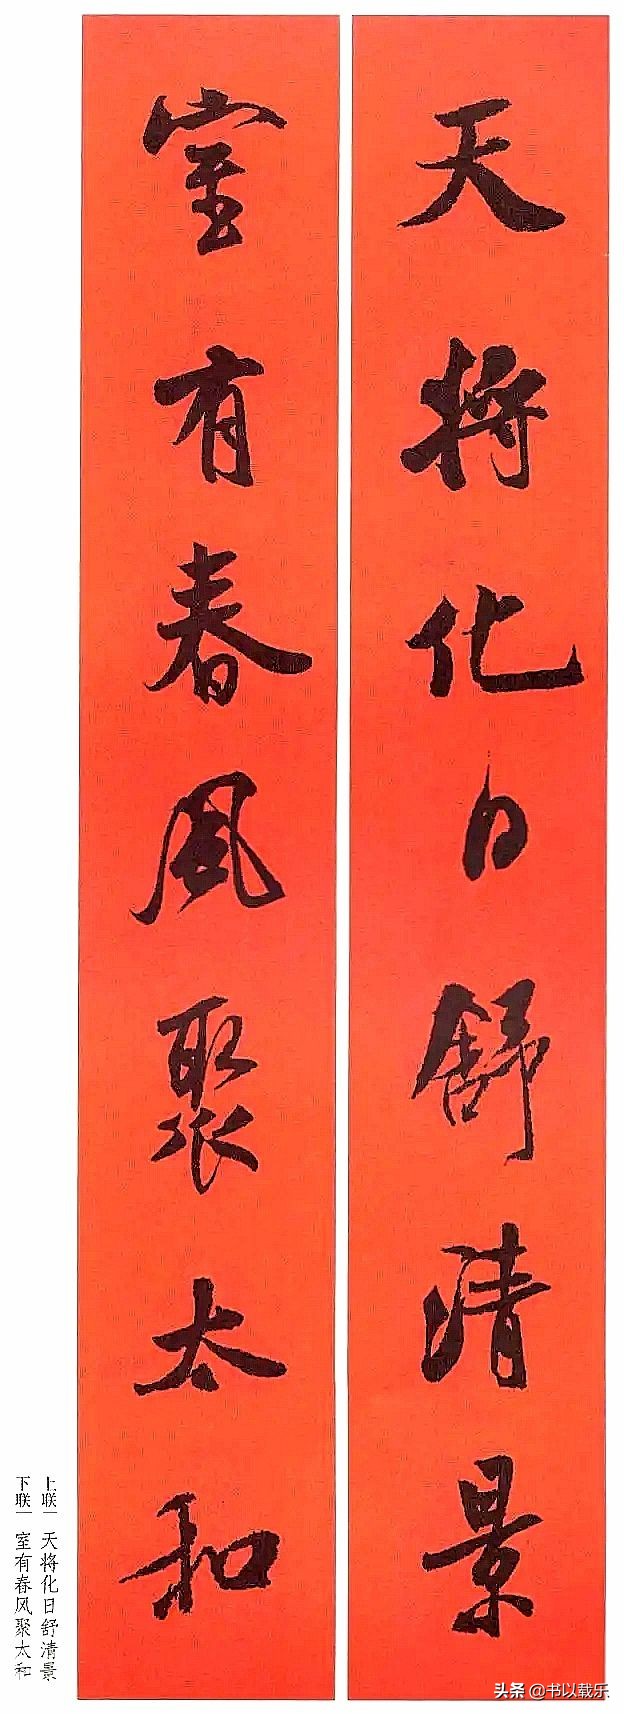 天将化日舒清景
室有春風聚太和
上联｜天将化日舒清景
下联｜室有春风聚太和
头条 @书以载乐